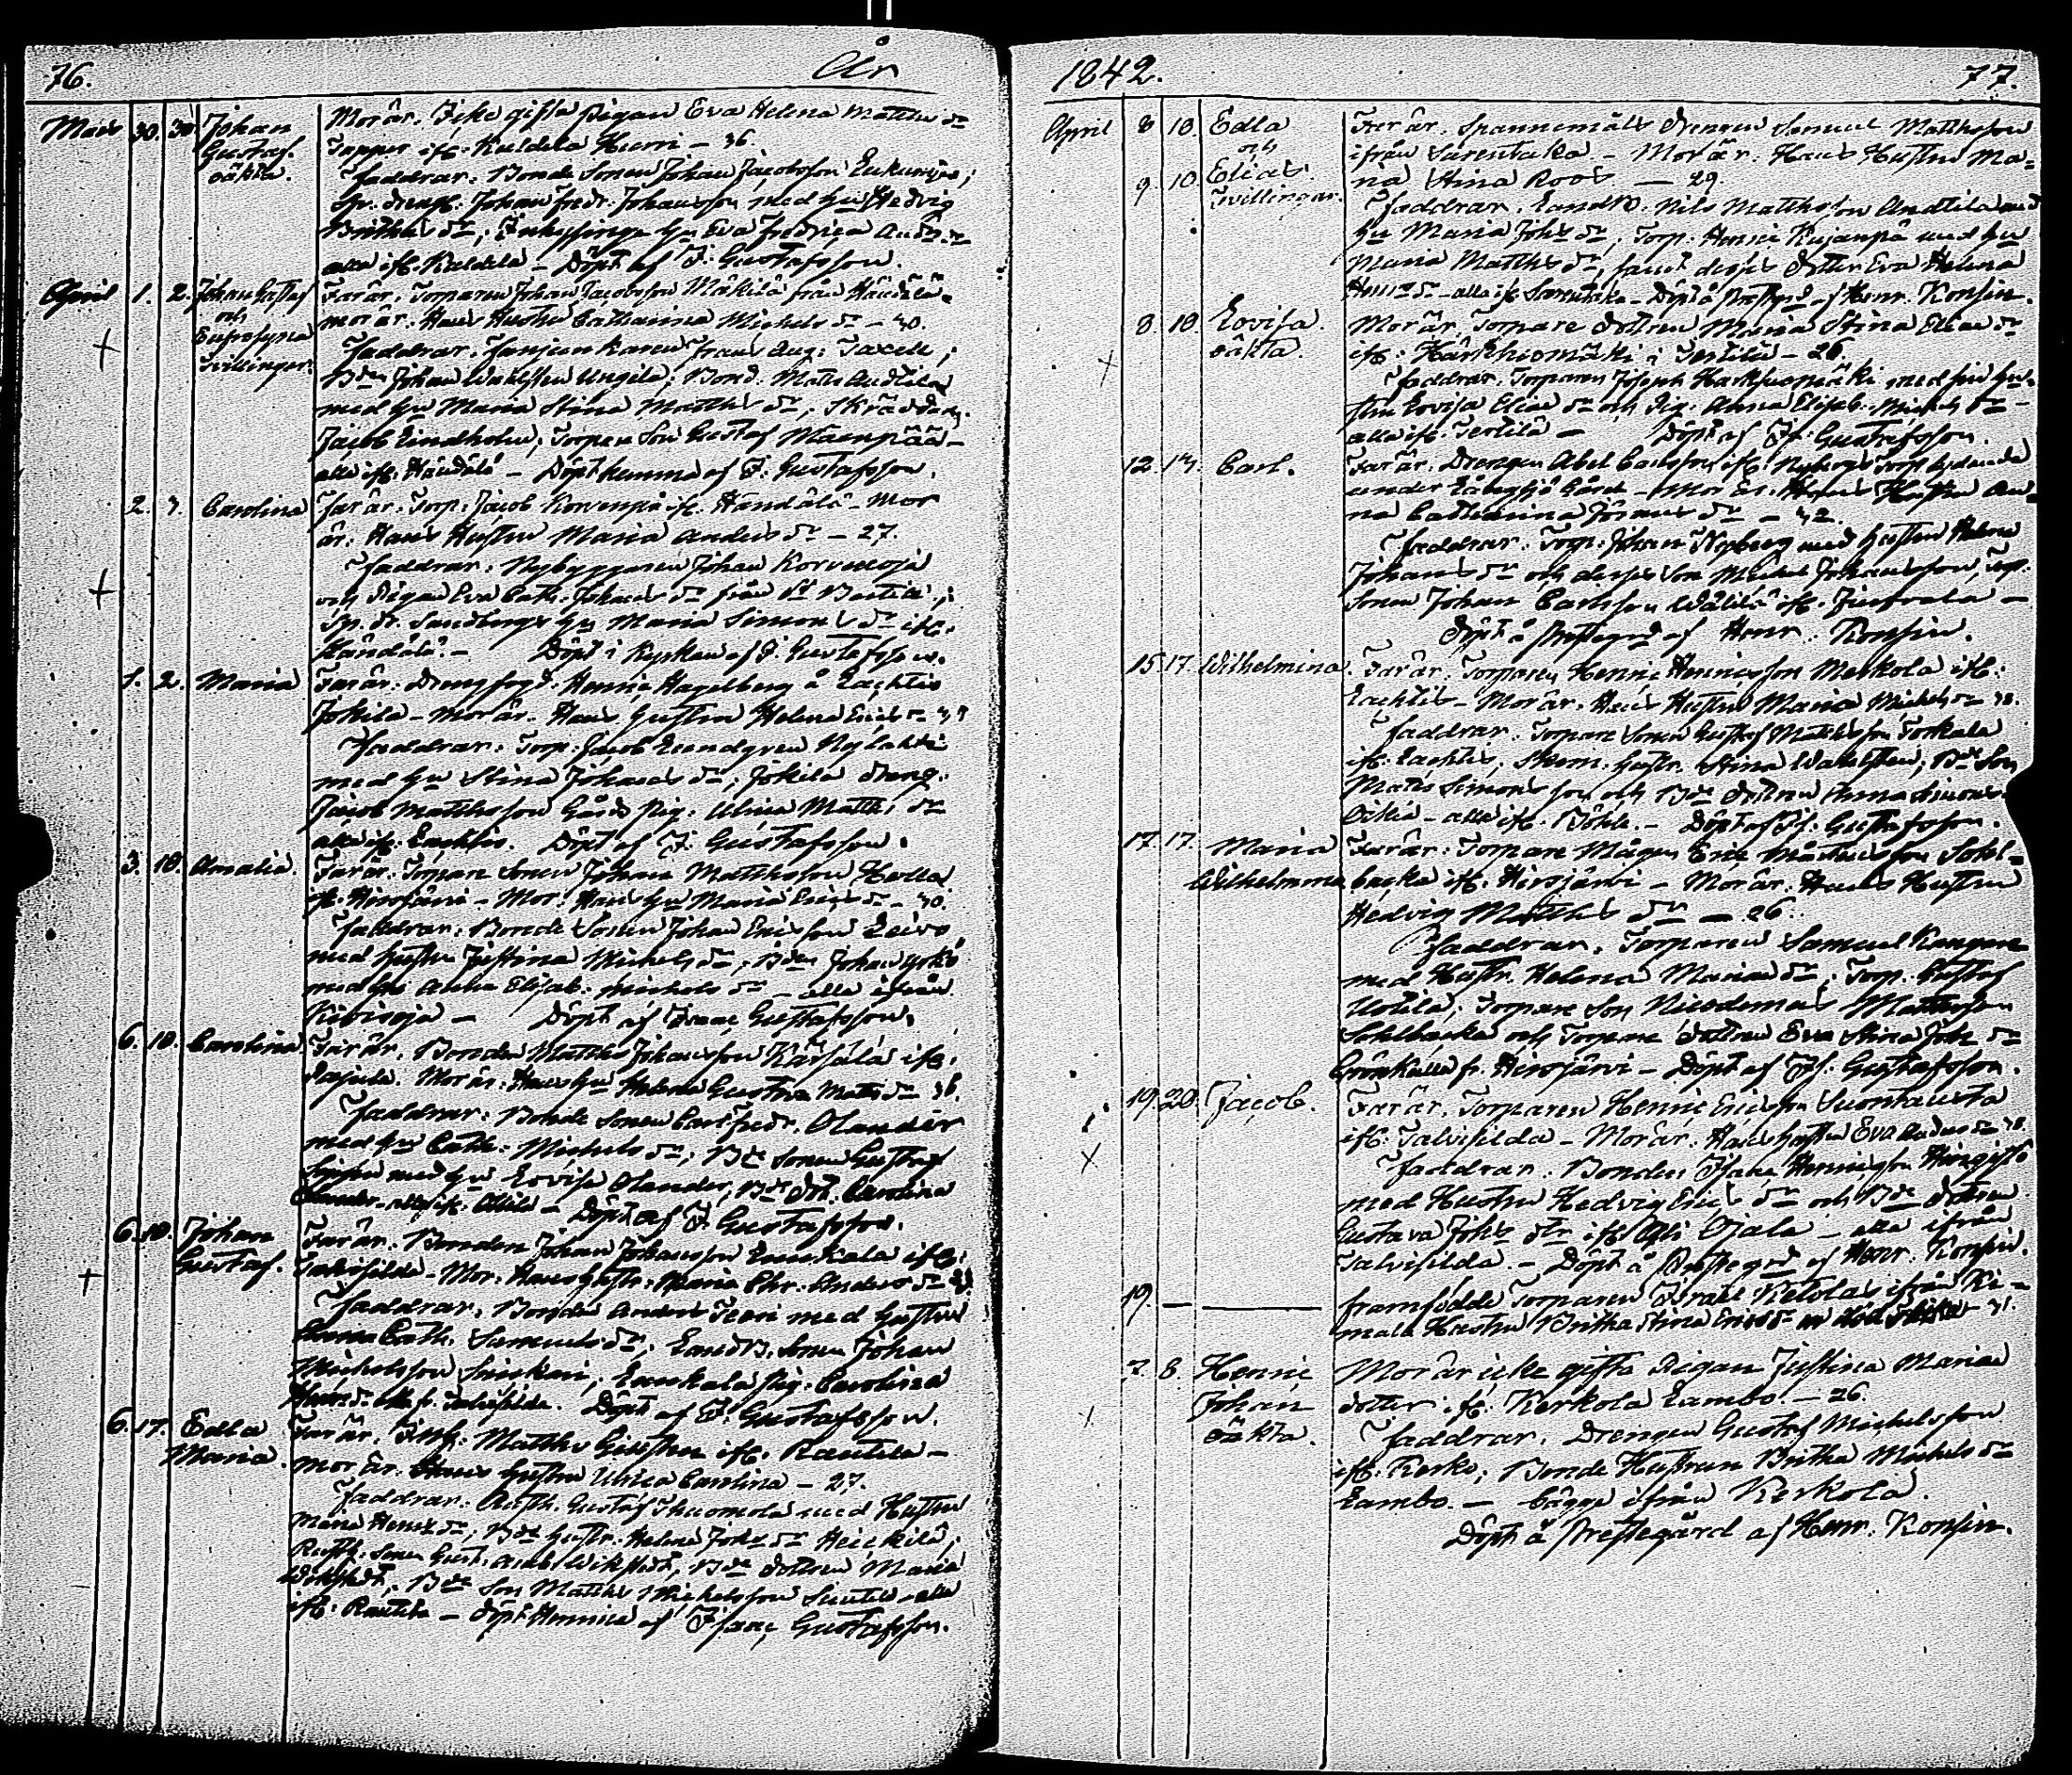 76. År
Mars 30. 30. Johan Gustaf. oäkta. Mor är. Icke gifta pigan Eva Helena Matths dr
Tapper ifr: Kuldela Hurri – 36.
Faddrar: Bonde Sonen Johan Jacobsson
Johan Fredr. Johansson med hu Hedvig
hu Eva Fredrica And: dr
alla ifr. Kuldela – Döpt af I: Gustafsson.
April 1. 2. Johan Gustaf och Eufrosyna Tvillingar: Far är. Torparen Johan Jacobsson Mäkilä från Händälä.
mor är. Hans Hustru Catharina Michels dr – 40.
Faddrar. Fanjunkaren Frans Aug: Taxell;
Bden Johan Wahlsten Ungila; Bond. Matts Andtila
med hu Maria Stina Matths dr, Skräddar.
Jacob Lindholm; Torpare Son Gustaf Mäenpää –
alla ifr. Händälä – Döpt hemma af I: Gustafsson.
2. 3. Carolina Far är. Torp: Jacob Korvenpä ifr. Händälä – Mor
är: Hans Hustru Maria Anders dr – 27.
Faddrar: Nybyggaren Johan Korvenoja
och Pigan Eva Cath: Johans dr från
Sp. dr. Sandbergs hu Maria Simons dr ifr.
Händälä. – Döpt i Kyrkan af I. Gustafsson.
1. 2. Maria Far är: Drengfogd: Henric Hagelberg å Lachtis
Jokila – mor är. Hans Hustru Helena Erics dr
Faddrar: Torp: Jacob Lundgren Nylahti
med hu Stina Johans dr; Jokila dreng:
Jacob Matthsson Gårds pig: Ulrica Matth: dr
alla ifr: Lachtis. Döpt af I: Gustafsson.
3. 10. Amalia. Far är. Torpare Sonen Johan Matthsson Halla
ifr. Hirsjärvi – Mor: Hans hu Maria Erics dr – 30.
Faddrar: Bonde Sonen Johan Ericsson Leivo
med hustru Justina Michels dr, Bden Johan Yrkö
med hu Anna Elisab: Michels dr – alla ifrån
Kivioja – Döpt af Isaac Gustafsson.
6. 10. Carolina Far är. Bonden Matths Johansson Kärsälä ifr.
Pajula. Mor är: Hans hu Helena Gustava Matts dr 36.
Faddrar: Bonde Sonen Carl Fredr. Olander
med hu Cath: Michels dr; Bde Sonen Gustaf
med hu Lovisa Olander, Bde dot. Carolina
Olander – Döpt af I. Gustafsson.
6. 10. Johan Gustaf. Far är: Bonden Johan Johansson Launkala ifr:
Talvisilda – Mor: Hans hustr: Maria Chr. Anders dr
Faddrar. Bonden Anders Teeri med hustru
Cath. Samuels dr; Landb: Sonen Johan
Michelsson; Launkala pig: Carolina
Talvisilda. Döpt af I. Gustafsson.
6. 17. Edla Maria. Far är. Matths ifr. Rautila –
mor är. Hans hustru Ulrica Carolina – 27.
Faddrar: Rusth. Gustaf Skuomola med Hustru
Maria Henrics dr; Bde hustr. Helena Johs dr Heickilä;
Rusth. Sonen Gust. Wikstedt, Bde dottren Maria
Wikstedt, Bde Son Matths Michelsson alla
ifr. Rautila – Döpt hemma af Isaac Gustafsson.
1842. 77.
April 8 9. 10 10. Edla och Elias. Tvillingar. Far är. Spannemåls drengen Samuel Matthsson
ifrån Sarentaka – Mor är. Hans Hustru Ma=
ria Stina Roos – 29.
Faddrar. Landb: Nils Matthsson Andtila med
hu Maria Johs dr, Torp: Henric Kujanpä med hu
Maria Matths dr, samt dess Dotter Eva Helena
Henrics dr – alla ifr. Sarentaka – Döpt å Prestgrd af Henr. Konsin.
8 10 Lovisa. oäkta. Mor är. Torpare dottren Maria Stina Elias dr
ifr: Harkhuomäki i Tertilä – 26.
Faddrar. Torparen Joseph Harkhuomäki med sin hu=
stru Lovisa Elias dr och Pig: Anna Elisab. Michels dr –
alla ifr. Tertilä – Döpt af Is: Gustafsson.
12. 17. Carl. Far är. Drengen Abel Carlsson ifr. Nybergs Torp lydande
under Långsjö Gård – Mor är. Hans Hustru An=
na Catharina Jöns dr – 42.
Faddrar. Torp: Johan Nyberg med hustru Helena
Johans dr och dess son Michel Johansson, Torp.
Sonen Johan Carlsson Wälilä ifr. –
Döpt å Prestegrd af Henr. Konsin.
15. 17. Wilhelmina. Far är. Torparen Henric Henricsson Merkola ifr:
Lachtis – Mor är. Hans Hustru Maria Michels dr 38.
Faddrar. Torpare Sonen Gustaf Matthsson Torkala
ifr. Lachtis; hustr. Stina Wahlsten; Bde Son
Matts Simonsson och Bde dottren Anna Simons
– alla ifr. Böhle. – Döpt af Is: Gustafsson.
17. 17. Maria Wilhelmina Far är: Torpare Mågen Eric Mårtensson Sohl=
backa ifr. Hirsjärvi – Mor är. Hans Hustru
Hedvig Matths dr – 26.
Faddrar. Torparen Samuel Kangare
med Hustr. Helena Maria dr; Torp. Gustaf
Uotila; Torpare Son Nicodemus Matthsson
Sohlbacka och Torpare dottren Eva Stina Joh dr
Grönkulla fr. Hirsjärvi – Döpt af Is. Gustafsson.
19. 20. Jacob. Far är. Torparen Henric Ericsson Suontausta
ifr. Talvisilda – Mor är. Hans hustru Eva Anders dr 38.
Faddrar: Bonden Isaac Henricsson Hingistö
med Hustru Hedvig Erics dr och Bde dottren
Gustava Johs dtr ifr. Ojala – alla ifrån
Talvisilda. – Döpt å Prestegrd af Henr: Konsin.
19. — — framfödde Torparen Israel Ketolas ifrån Ki=
mala Hustru Britha Stina Erics dr
7. 8. Henric Johan oäkta. Mor är icke gifta Pigan Justina Maria
dotter ifr. Kerkola Lambo. – 26.
Faddrar. Drengen Gustaf Michelsson
ifr. Kerko; Bonde Hustrun Britha Michels dr
Lambo. – bägge ifrån Kerkola.
Döpt å Prestegård af Henr. Konsin.